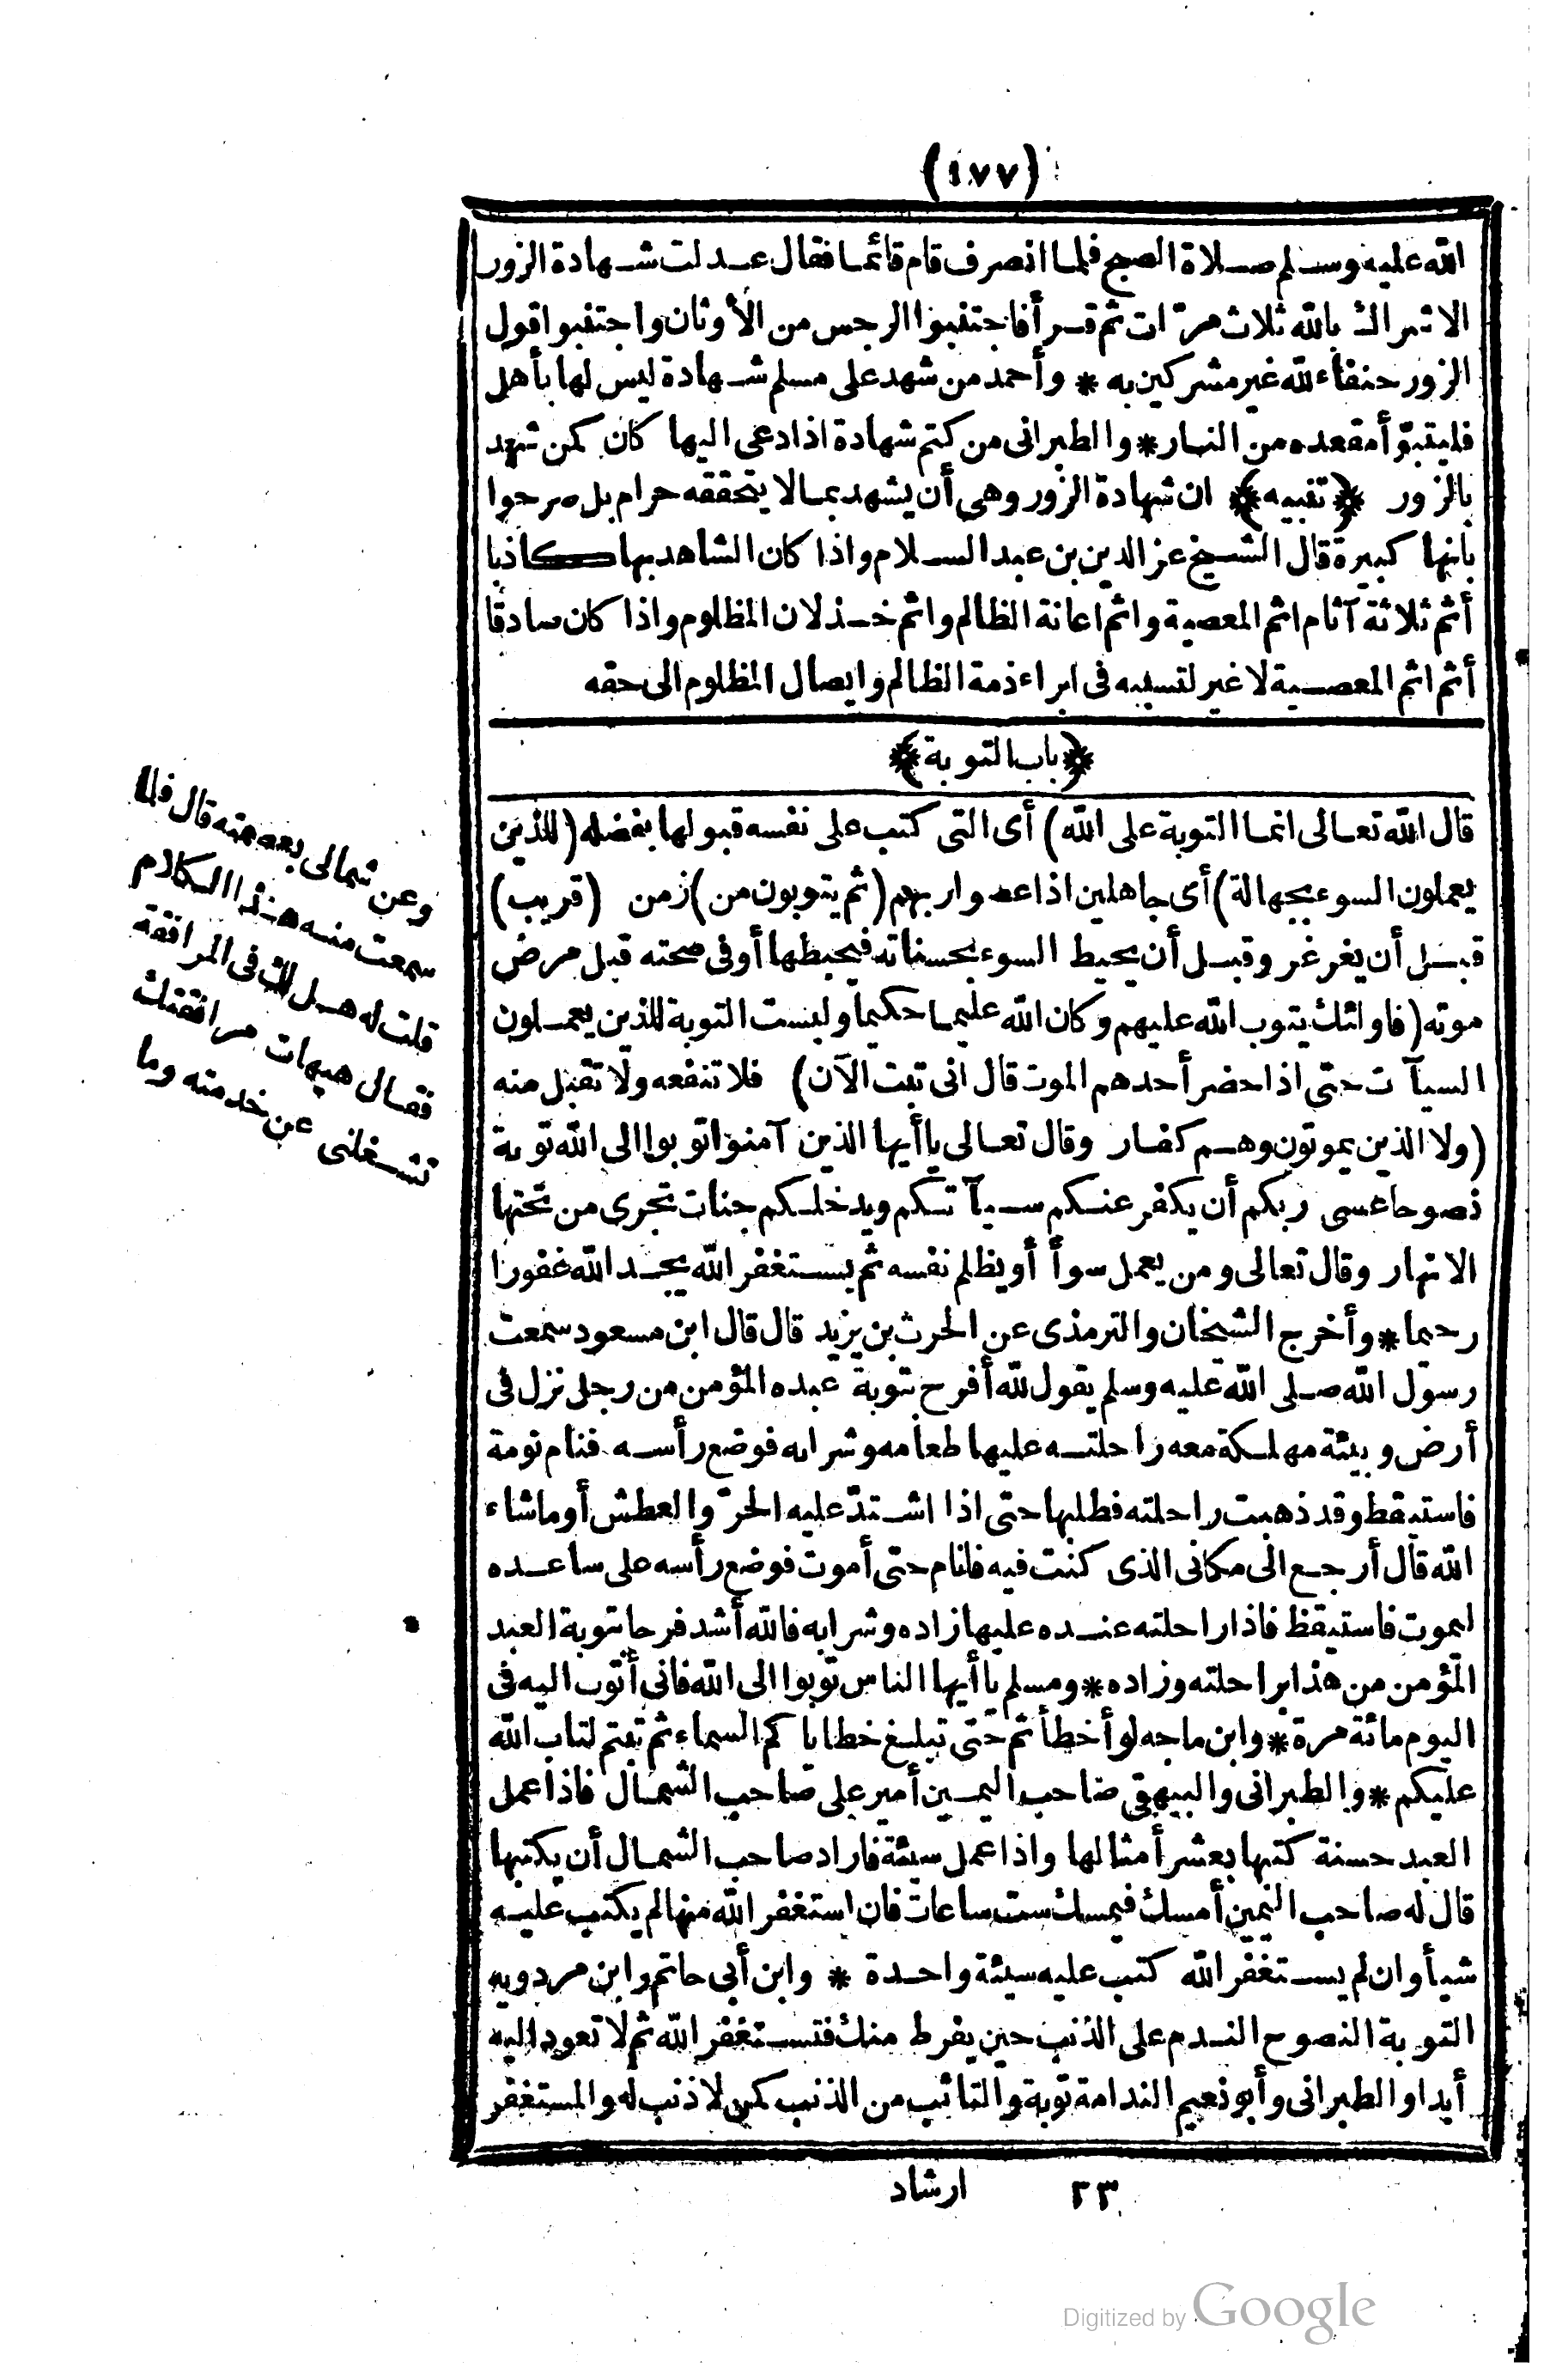 (١٧٧)
الله عليه وسلم صلاة الصبح فلما انصرف قام قائما فقال عدلت شهادة الزور
الاشراك بالله ثلاث مرّات ثم قرأ فاجتنبوا الرجس من الأوثان واجتنبوا قول
الزور حنفاء لله غير مشركين به * وأحمد من شهد على مسلم شهادة ليس لها بأهل
فليتبوّأ مقعده من النار * والطبرانى من كتم شهادة اذا دعى اليها كان كمن شهد
بالزور ﴿تنبيه﴾ ان شهادة الزور وهى أن يشهد بمالا يتحققه حرام بل صرحوا
بانها كبيرة قال الشيخ عز الدين بن عبد السلام واذا كان الشاهد بها كاذبا
أثم ثلاثة آثام اثم المعصية واثم اعانة الظالم واثم خذلان المظلوم واذا كان صادقا
أثم اثم المعصية لا غير لتسببه فى ابراء ذمة الظالم وايصال المظلوم الى حقه
﴿باب التوبة﴾
قال الله تعالى انما التوبة على الله) أى التى كتب على نفسه قبولها بفضله (للذين
يعملون السوء بجهالة) أى جاهلين اذا عصوا ربهم (ثم يتوبون من) زمن (قريب)
قبل أن يغرغر وقبل أن يحيط السوء بحسناته فيحبطها أو فى صحته قبل مرض
موته (فاولئك يتوب الله عليهم وكان الله عليما حكيما وليست التوبة للذين يعملون
السيآت حتى اذا حضر أحدهم الموت قال انى تبت الآن) فلا تنفعه ولا تقبل منه
(ولا الذين يموتون وهم كفار وقال تعالى يا أيها الذين آمنوا توبوا الى الله توبة
نصوحا عسى ربكم أن يكفر عنكم سيآتكم ويدخلكم جنات تجرى من تحتها
الانهار وقال تعالى ومن يعمل سوأ أو يظلم نفسه ثم يستغفر الله يجد الله غفورا
رحيما * وأخرج الشيخان والترمذى عن الحرث بن يزيد قال قال ابن مسعود سمعت
رسول الله صلى الله عليه وسلم يقول لله أفرح بتوبة عبده المؤمن من رجل نزل فى
أرض وبيئة مهلكة معه راحلته عليها طعامه وشرابه فوضع رأسه فنام نومة
فاستيقظ وقد ذهبت راحلته فطلبها حتى اذا اشتدّ عليه الحرّ والعطش أو ما شاء
الله قال أرجع الى مكانى الذى كنت فيه فانام حتى أموت فوضع رأسه على ساعده
ليموت فاستيقظ فاذا راحلته عنده عليها زاده وشرابه فالله أشد فرحا بتوبة العبد
المؤمن من هذا براحلته وزاده * ومسلم يا أيها الناس توبوا الى الله فانى أتوب اليه فى
اليوم مائة مرة * وابن ماجه لو أخطأتم حتى تبلغ خطاياكم السماء ثم تبتم لتاب الله
عليكم * والطبرانى والبيهقى صاحب اليمين أمير على صاحب الشمال فاذا عمل
العبد حسنة كتبها بعشر أمثالها واذا عمل سيئة فاراد صاحب الشمال أن يكتبها
قال له صاحب اليمين أمسك فيمسك ست ساعات فان استغفر الله منها لم يكتب عليه
شيأ وان لم يستغفر الله كتب عليه سيئة واحدة * وابن أبى حاتم وابن مردويه
التوبة النصوح الندم على الذنب حين يفرط منك فتستغفر الله ثم لا تعود اليه
أبدا والطبرانى وأبو نعيم الندامة توبة والتائب من الذنب كمن لا ذنب له والمستغفر
وعن شمالى بعصمته قال فلما
سمعت منه هذا الكلام
قلت له هل لك فى المرافقة
فقال هيهات مرافقتك
تشغلنى عن خدمته وما
٢٣ ارشاد
Digitized by Google